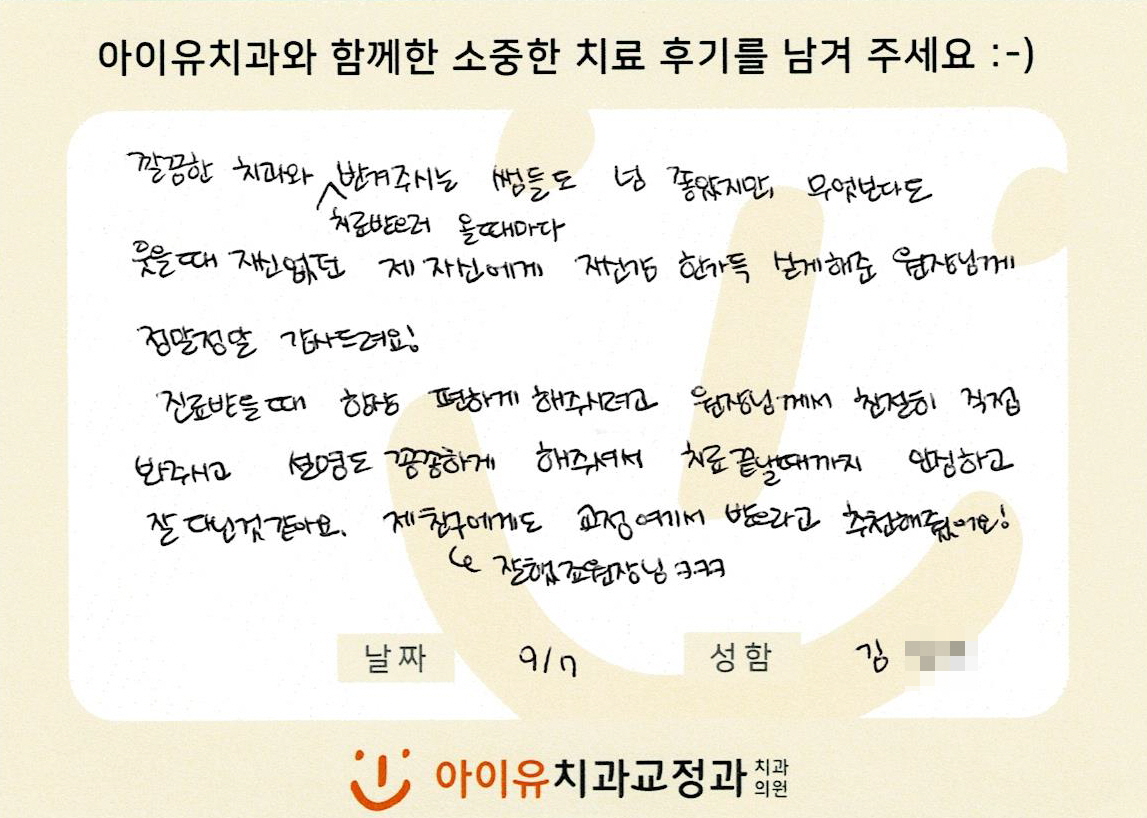 아이유치과와 함께한 소중한 치료 후기를 남겨 주세요 :-)
깔끔한 치과와 반겨주시는 쌤들도 넘 좋았지만, 무엇보다도
치료받으러 올때마다
웃을때 자신없던 제 자신에게 자신감 한가득 남게해준 원장님께
정말정말 감사드려요!
진료받을때 항상 편하게 해주시려고 원장님께서 친절히 직접
봐주시고 설명도 꼼꼼하게 해주셔서 치료끝날때까지 안심하고
잘 다닌것같아요. 제친구에게도 교정 여기서 받으라고 추천해줬어요!
↳ 잘했죠원장님 ㅋㅋㅋ
날짜 9/7 성함 김
아이유치과교정과 치과의원